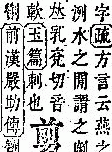 字疏方言云燕之
洌水之閒謂之
丛乳兗切音
剪
玉篇刺也
前漢嚴助傳